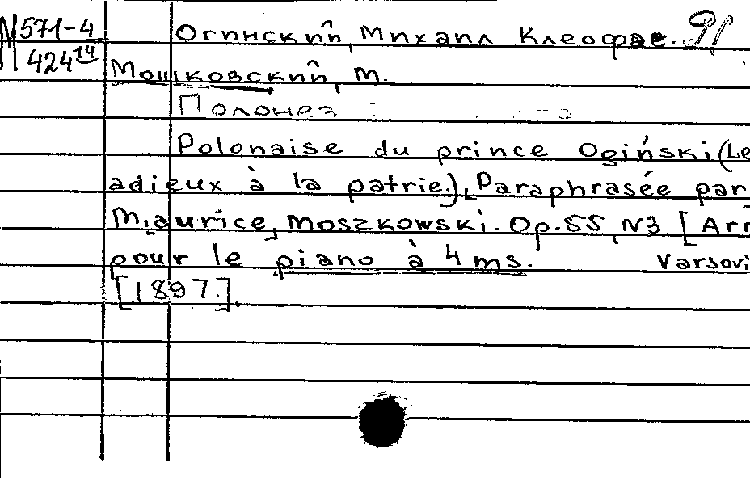 М 571-4
424 14
Огинский, Михаил Клеофас. 91
Мошковский, М.
Полонез
Polonaise du prince Ogiński (Le
adieux à la patrie.). Paraphrasée par
M[aurice] Moszkowski. Op. 55, N3 [Arr
pour le piano à 4 ms. Varsovi
[1897.].